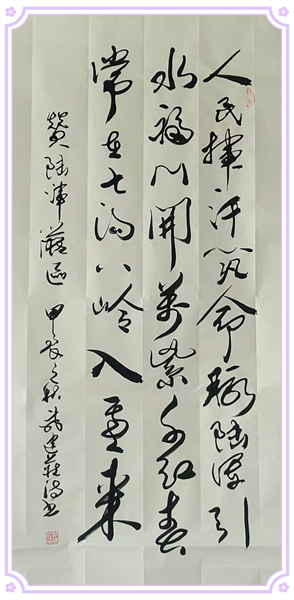 人民挥汗筑命脉陆浑引
水福门開万紫千红春
常在七沟八岭入画来
赞陆浑灌区 甲辰之秋武建莊